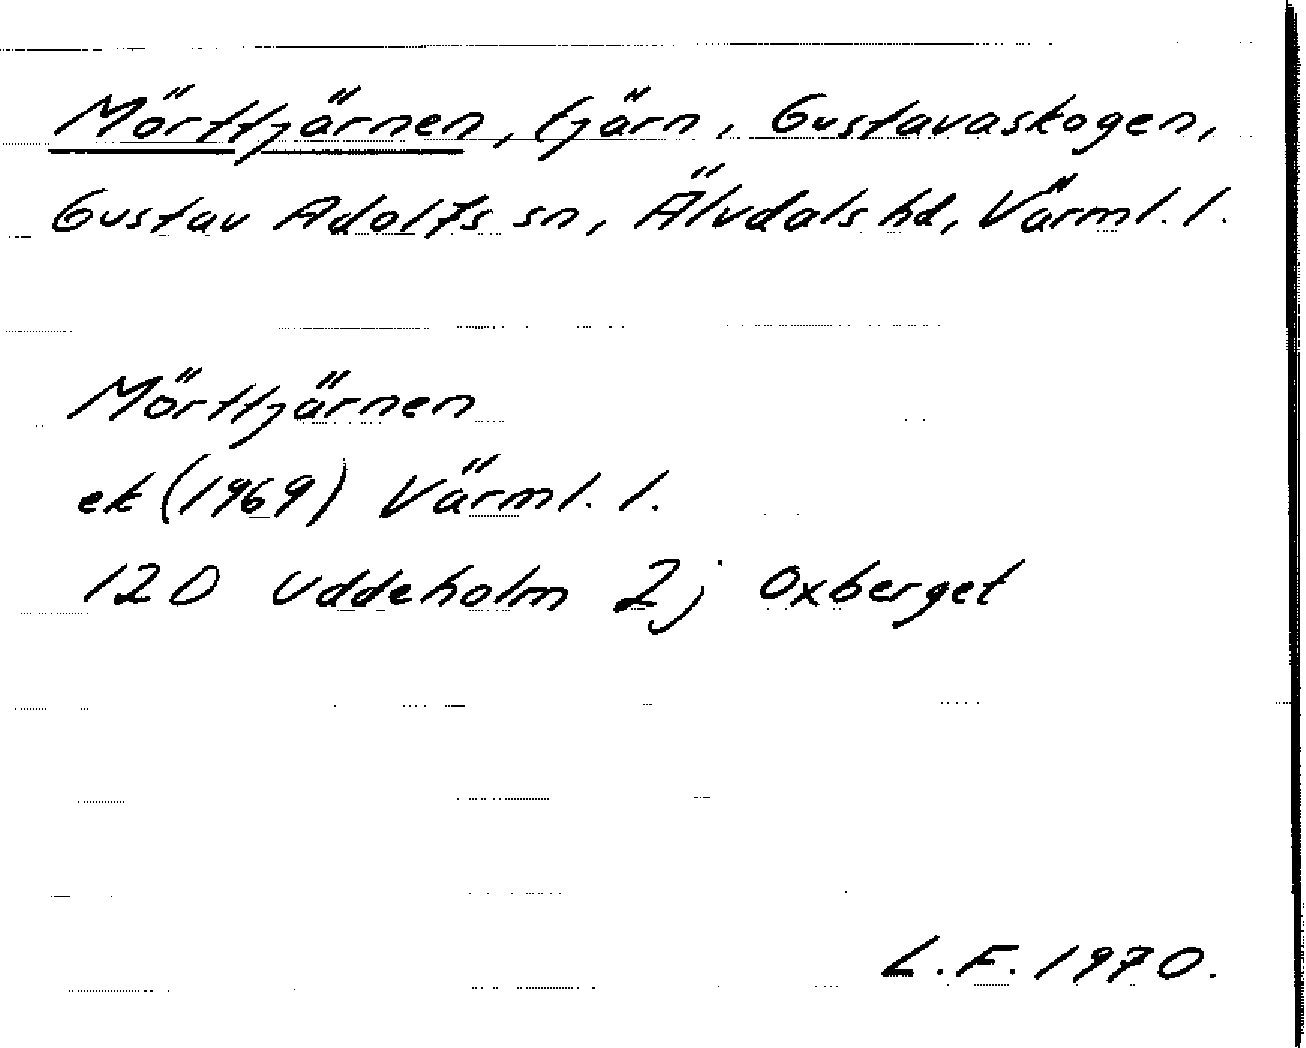 Mörttjärnen, tjärn, Gustavaskogen,
Gustav Adolfs sn, Älvdals hd, Värml. l.
Mörttjärnen
ek (1969) Värml. l.
12D Uddeholm 2j Oxberget
L.F. 1970.